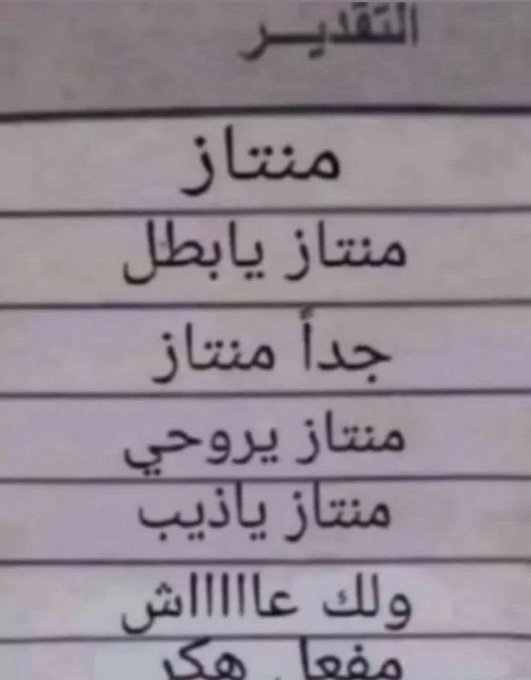 التقدير
منتاز
منتاز يابطل
جداً منتاز
منتاز يروحي
منتاز ياذيب
ولك عاااااش
مفعل هكر